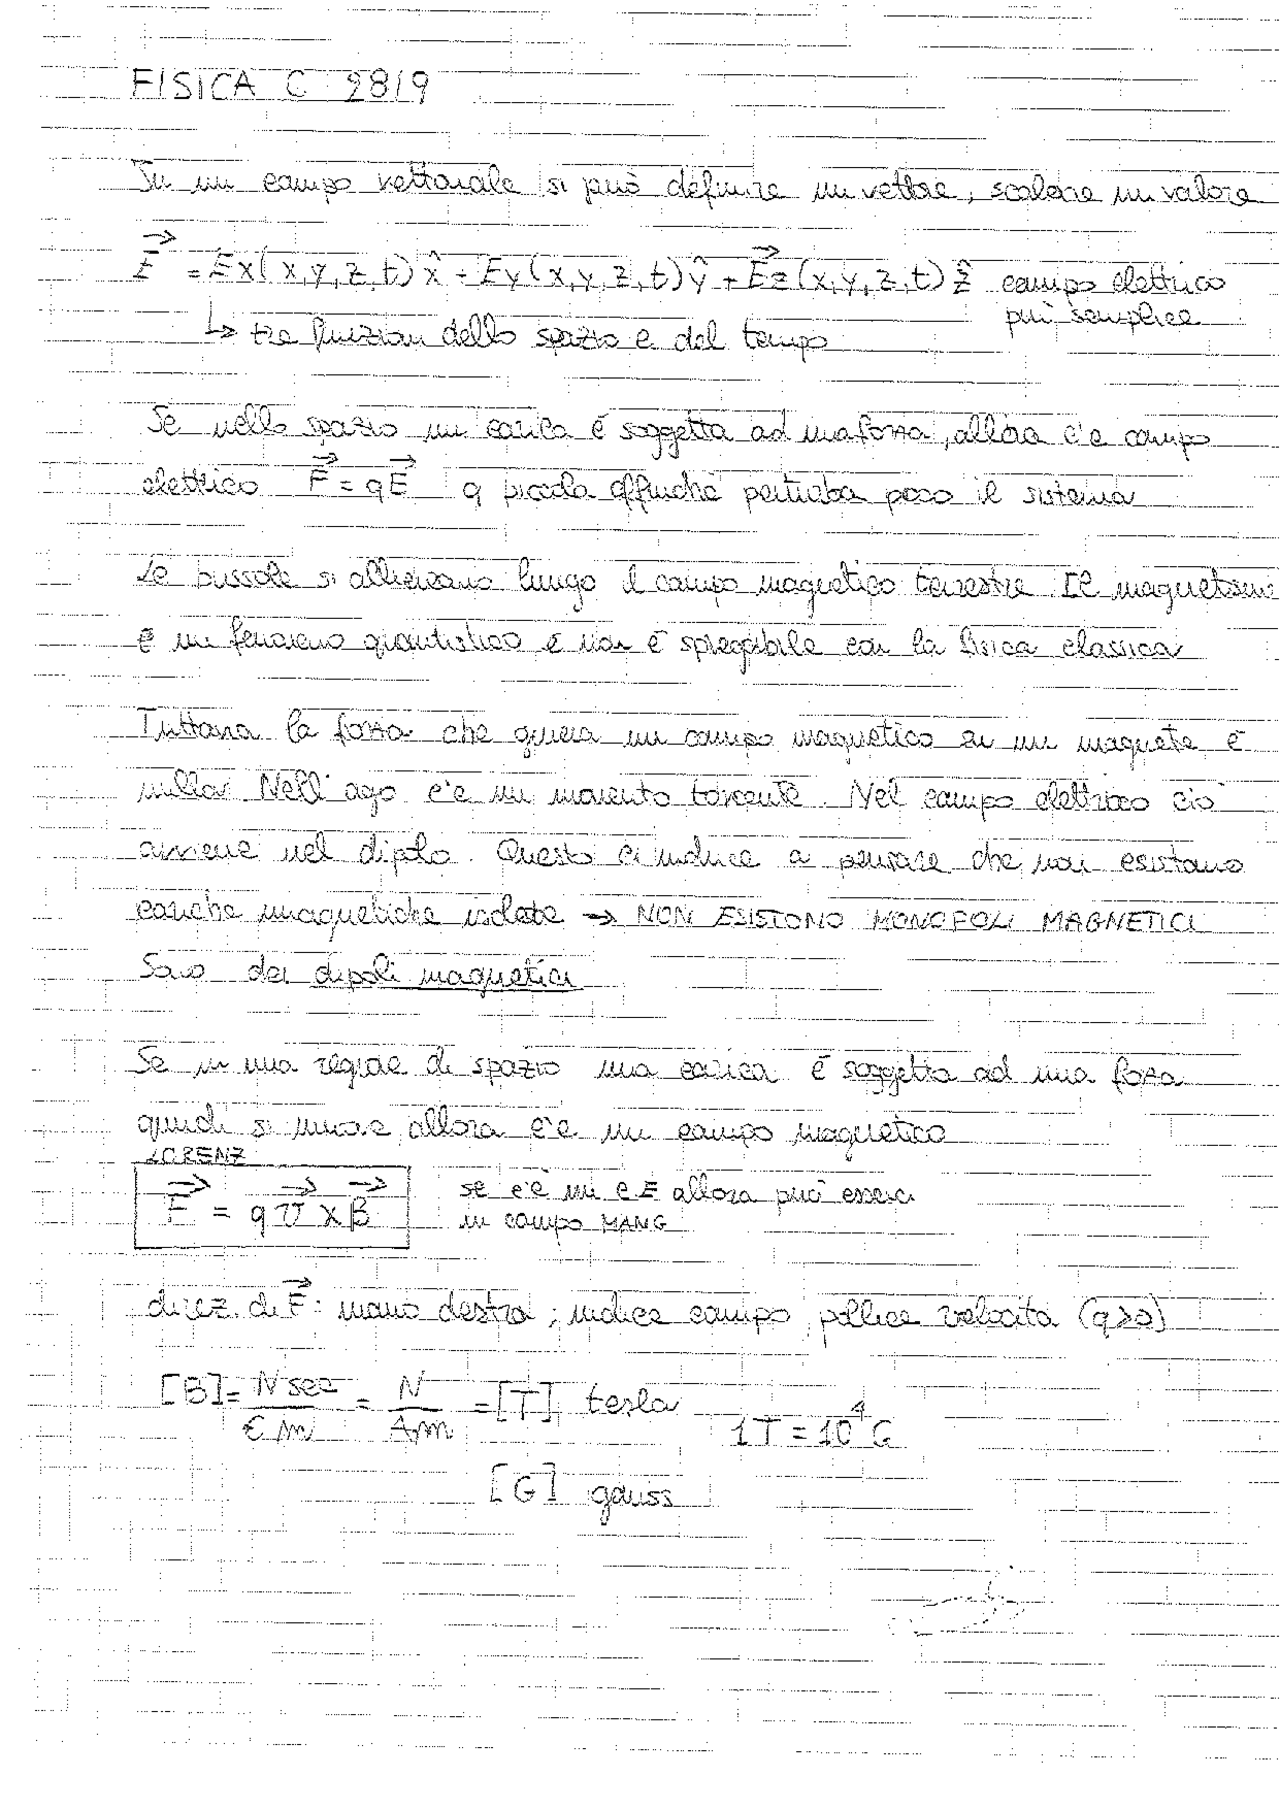 FISICA C 28/9
In un campo vettoriale si può definire un vettore, scalare un valore
E = Ex(x,y,z,t) x̂ + Ey(x,y,z,t) ŷ + Ez(x,y,z,t) ẑ campo elettrico
più semplice
↳ tre funzioni dello spazio e del tempo
Se nello spazio un carica è soggetta ad una forza, allora c'è campo
elettrico F = qE q piccola affinché perturba poco il sistema
Le bussole si allineano lungo il campo magnetico terrestre. Il magnetismo
è un fenomeno quantistico e non è spiegabile con la fisica classica
Tuttavia la forza che genera un campo magnetico su un magnete è
nulla. Nell'ago c'è un momento torcente. Nel campo elettrico ciò
avviene nel dipolo. Questo ci induce a pensare che non esistano
cariche magnetiche isolate → NON ESISTONO MONOPOLI MAGNETICI
Sono dei dipoli magnetici
Se in una regione di spazio una carica è soggetta ad una forza
quindi si muove allora c'è un campo magnetico
LORENZ
F = qv × B
se c'è un c E allora può esserci
un campo MANG
direz. di F: mano destra; indice campo, pollice velocità (q>0)
[B] = N sec / C m = N / A m = [T] tesla 1T = 10⁴ G
[G] gauss